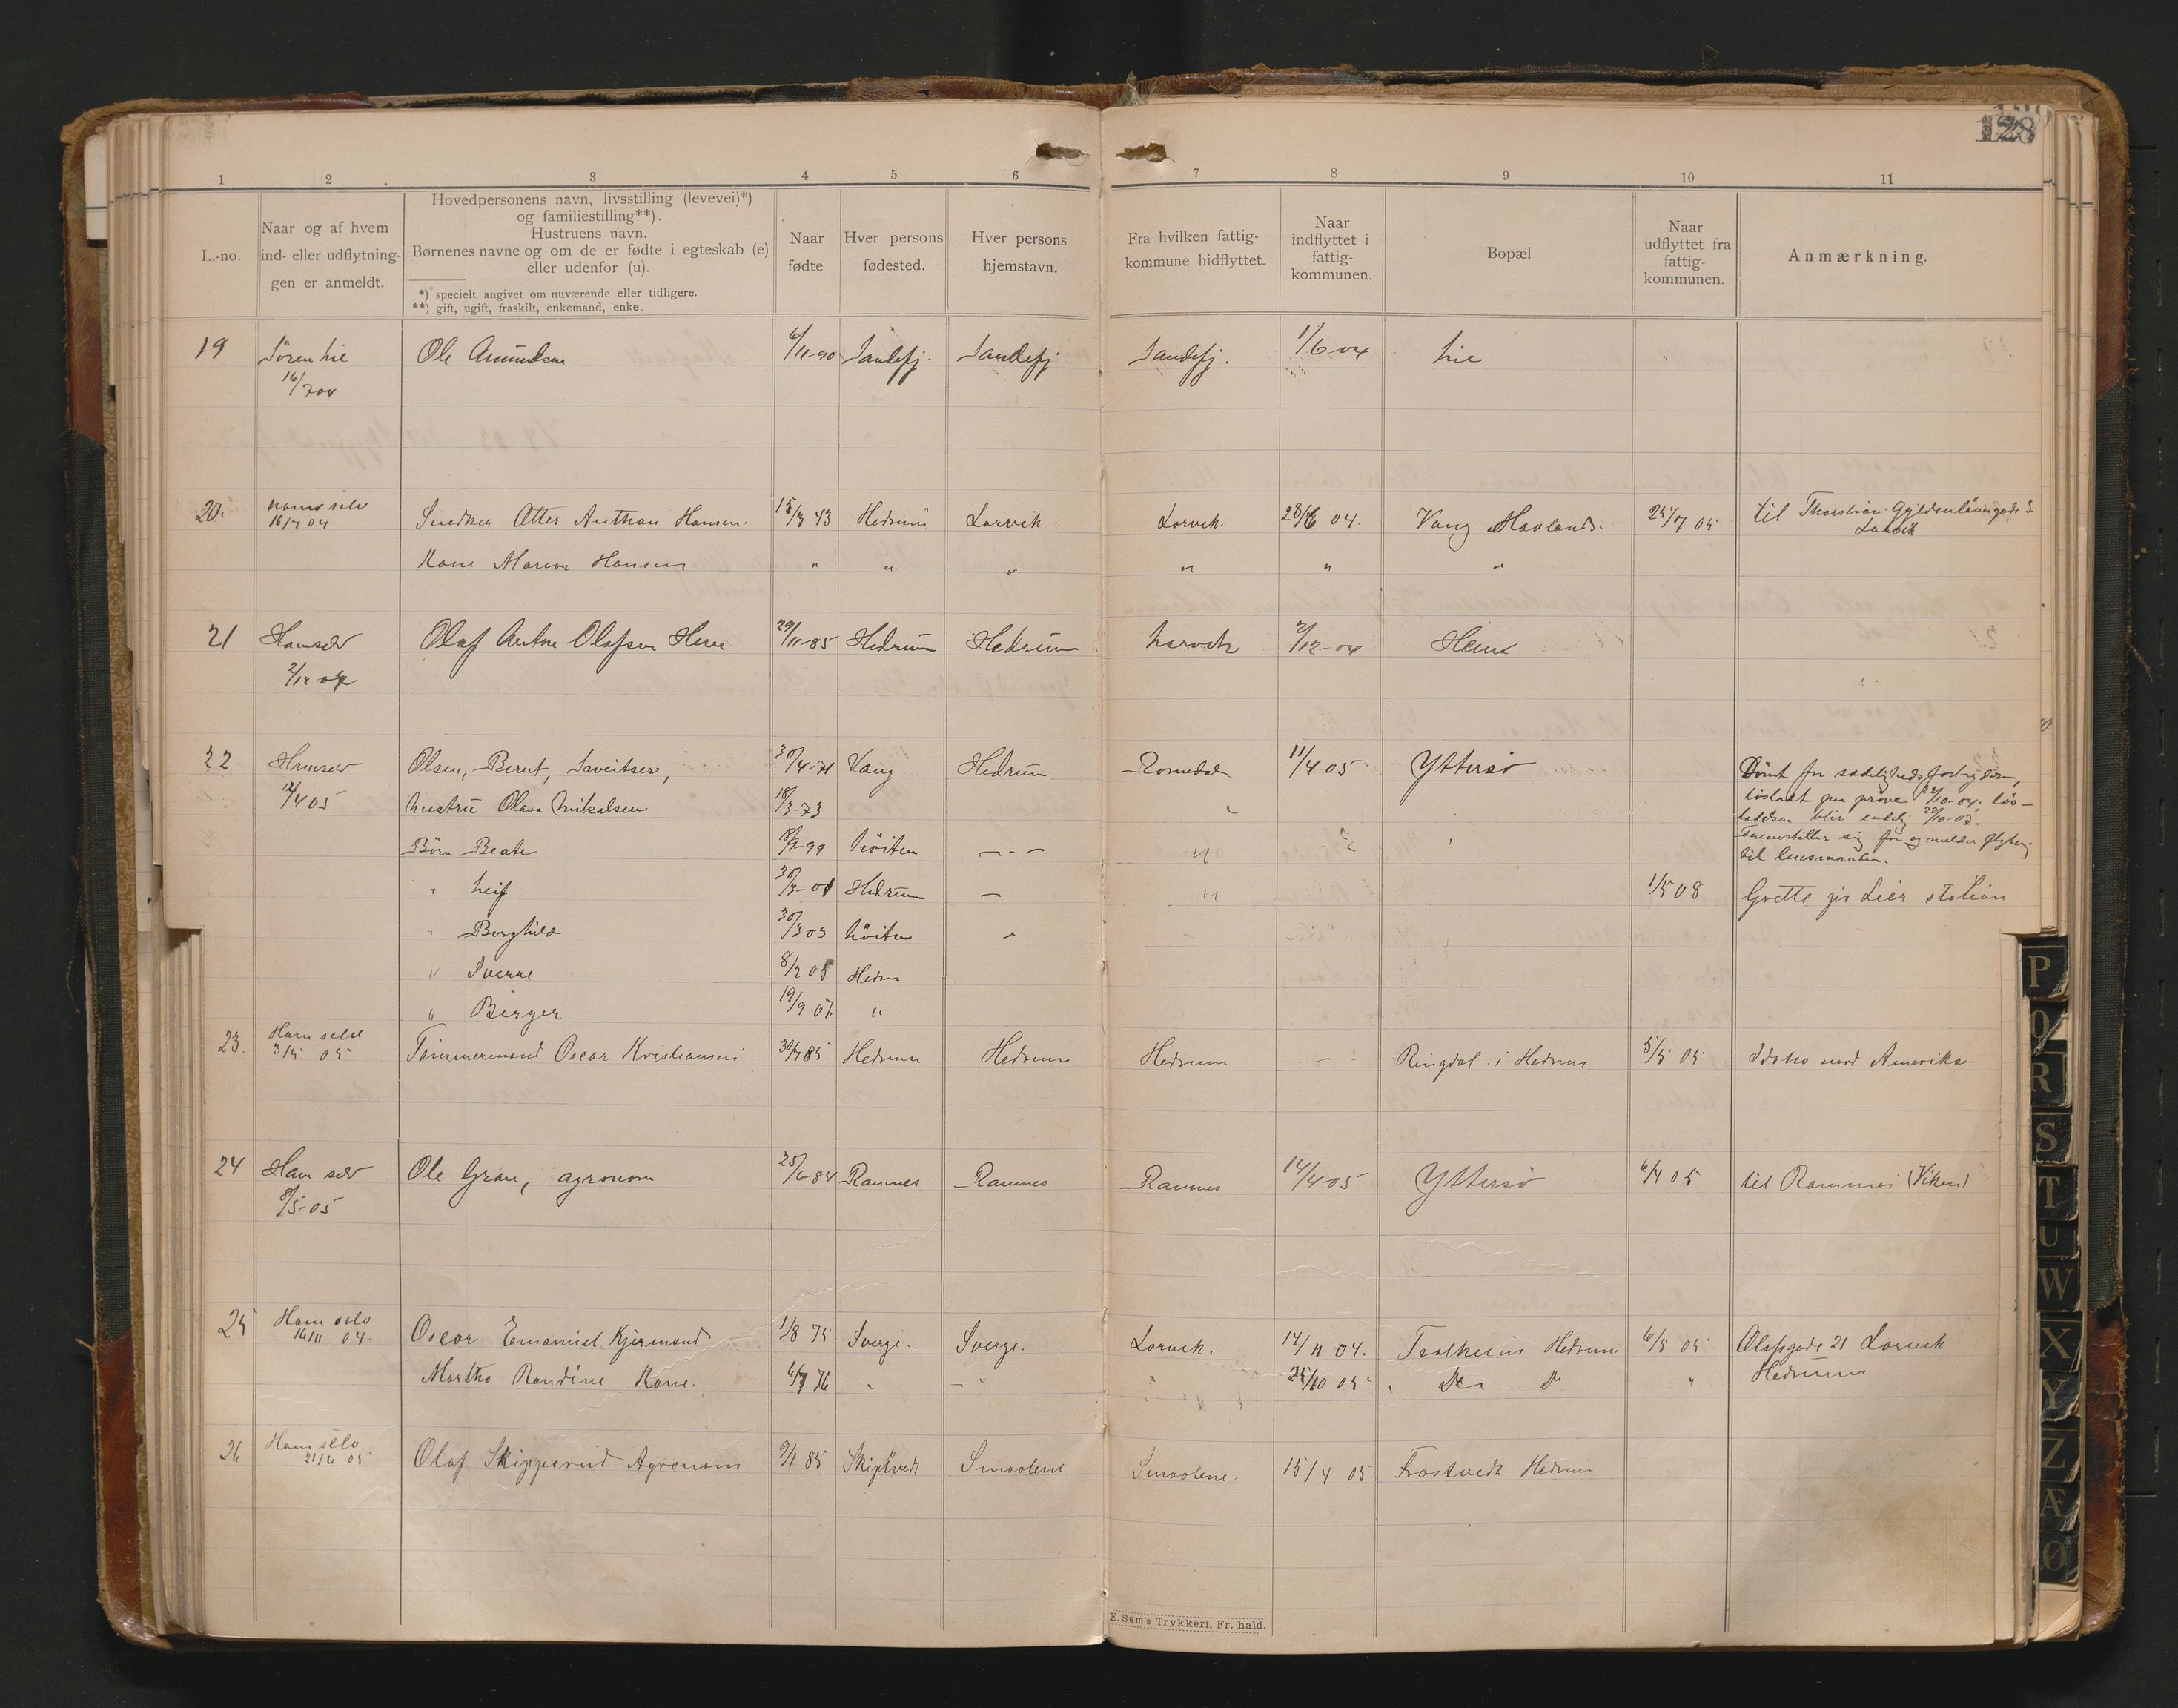 128
1 2 3 4 5 6 7 8 9 10 11
L.-no.
Naar og af hvem
ind- eller udflytnin-
gen er anmeldt.
Hovedpersonens navn, livsstilling (levevei)*)
og familiestilling**).
Hustruens navn.
Børnenes navne og om de er fødte i egteskab (e)
eller udenfor (u).
*) specielt angivet om nuværende eller tidligere.
**) gift, ugift, fraskilt, enkemand, enke.
Naar
fødte
Hver persons
fødested.
Hver persons
hjemstavn.
Fra hvilken fattig-
kommune hidflyttet.
Naar
indflyttet i
fattig-
kommunen.
Bopæl
Naar
udflyttet fra
fattig-
kommunen.
Anmærkning.
19 Sören Lie Ole Amundsen 6/11-90 Sandefj. Sandefj Sandefj. 1/6-04 Lie
16/7 04
20. Ham selv Snedker Otter Anthon Hansen. 15/3 43 Hedrum Larvik. Larvik. 28/6 04. Vang Havlands. 25/7 05 til Gyldenlövesgade 5
16/7 04 Larvik
Kone Maren Hansen " " " " " "
21 Ham selv Olaf Anton Olafsen Hem 29/11-85 Hedrum Hedrum Larvik 2/12-04 Hem
2/12 04
22 Ham selv Olsen, Bernt, Sveitser, 30/4-71 Vang Hedrum Romedal 11/4 05 Yttersö Dömt for sædelighedsforbrydelse,
12/4 05 hustru Olava Mikalsen 18/3-73 " löslatt paa pröve 22/10-04. lös-
ladelsen blir endelig 22/10-07.
Börn Beate 99 Löiten — " — " Fremstiller sig for og melder flytning
til lensmanden.
" Leif 30/3-01 Hedrum — " 1/5 08 Grette pr Lier station
" Borghild 30/3 03 Löiten "
" Sverre 8/2 05 Hedrm
" Birger 19/9 07. "
23. Ham selv Tömmermand Oscar Kristiansen 30/7 85 Hedrum Hedrum Hedrum - — - Ringdal i Hedrum 5/5 05 Idaho nord Amerika.
3/5 05
24 Ham selv Ole Gran, agronom 25/6-84 Ramnes Ramnes Ramnes 14/4 05 Yttersö 6/4 05 til Ramnes (Viken)
8/5-05
25 Ham selv Oscar Emanuel Kjermand 1/8 75 Sverge. Sverge. Larvik. 14/11 04. Hedrum 6/5 05 Olafsgade 21 Larvik
16/11 04.
Martha Randine Kone. 6/7 76 " — " " 25/10 05 Do Do " Hedrum
26 Ham selv Olaf Skipperud Agronom 9/1 85 Skiptvedt Smaalene Smaalene. 15/4 05 Frostvedt Hedrum
21/6 05
E. Sem's Trykkeri, Fr. hald.
P
Q
R
S
T
U
W
X
Y
Z
Æ
Ø